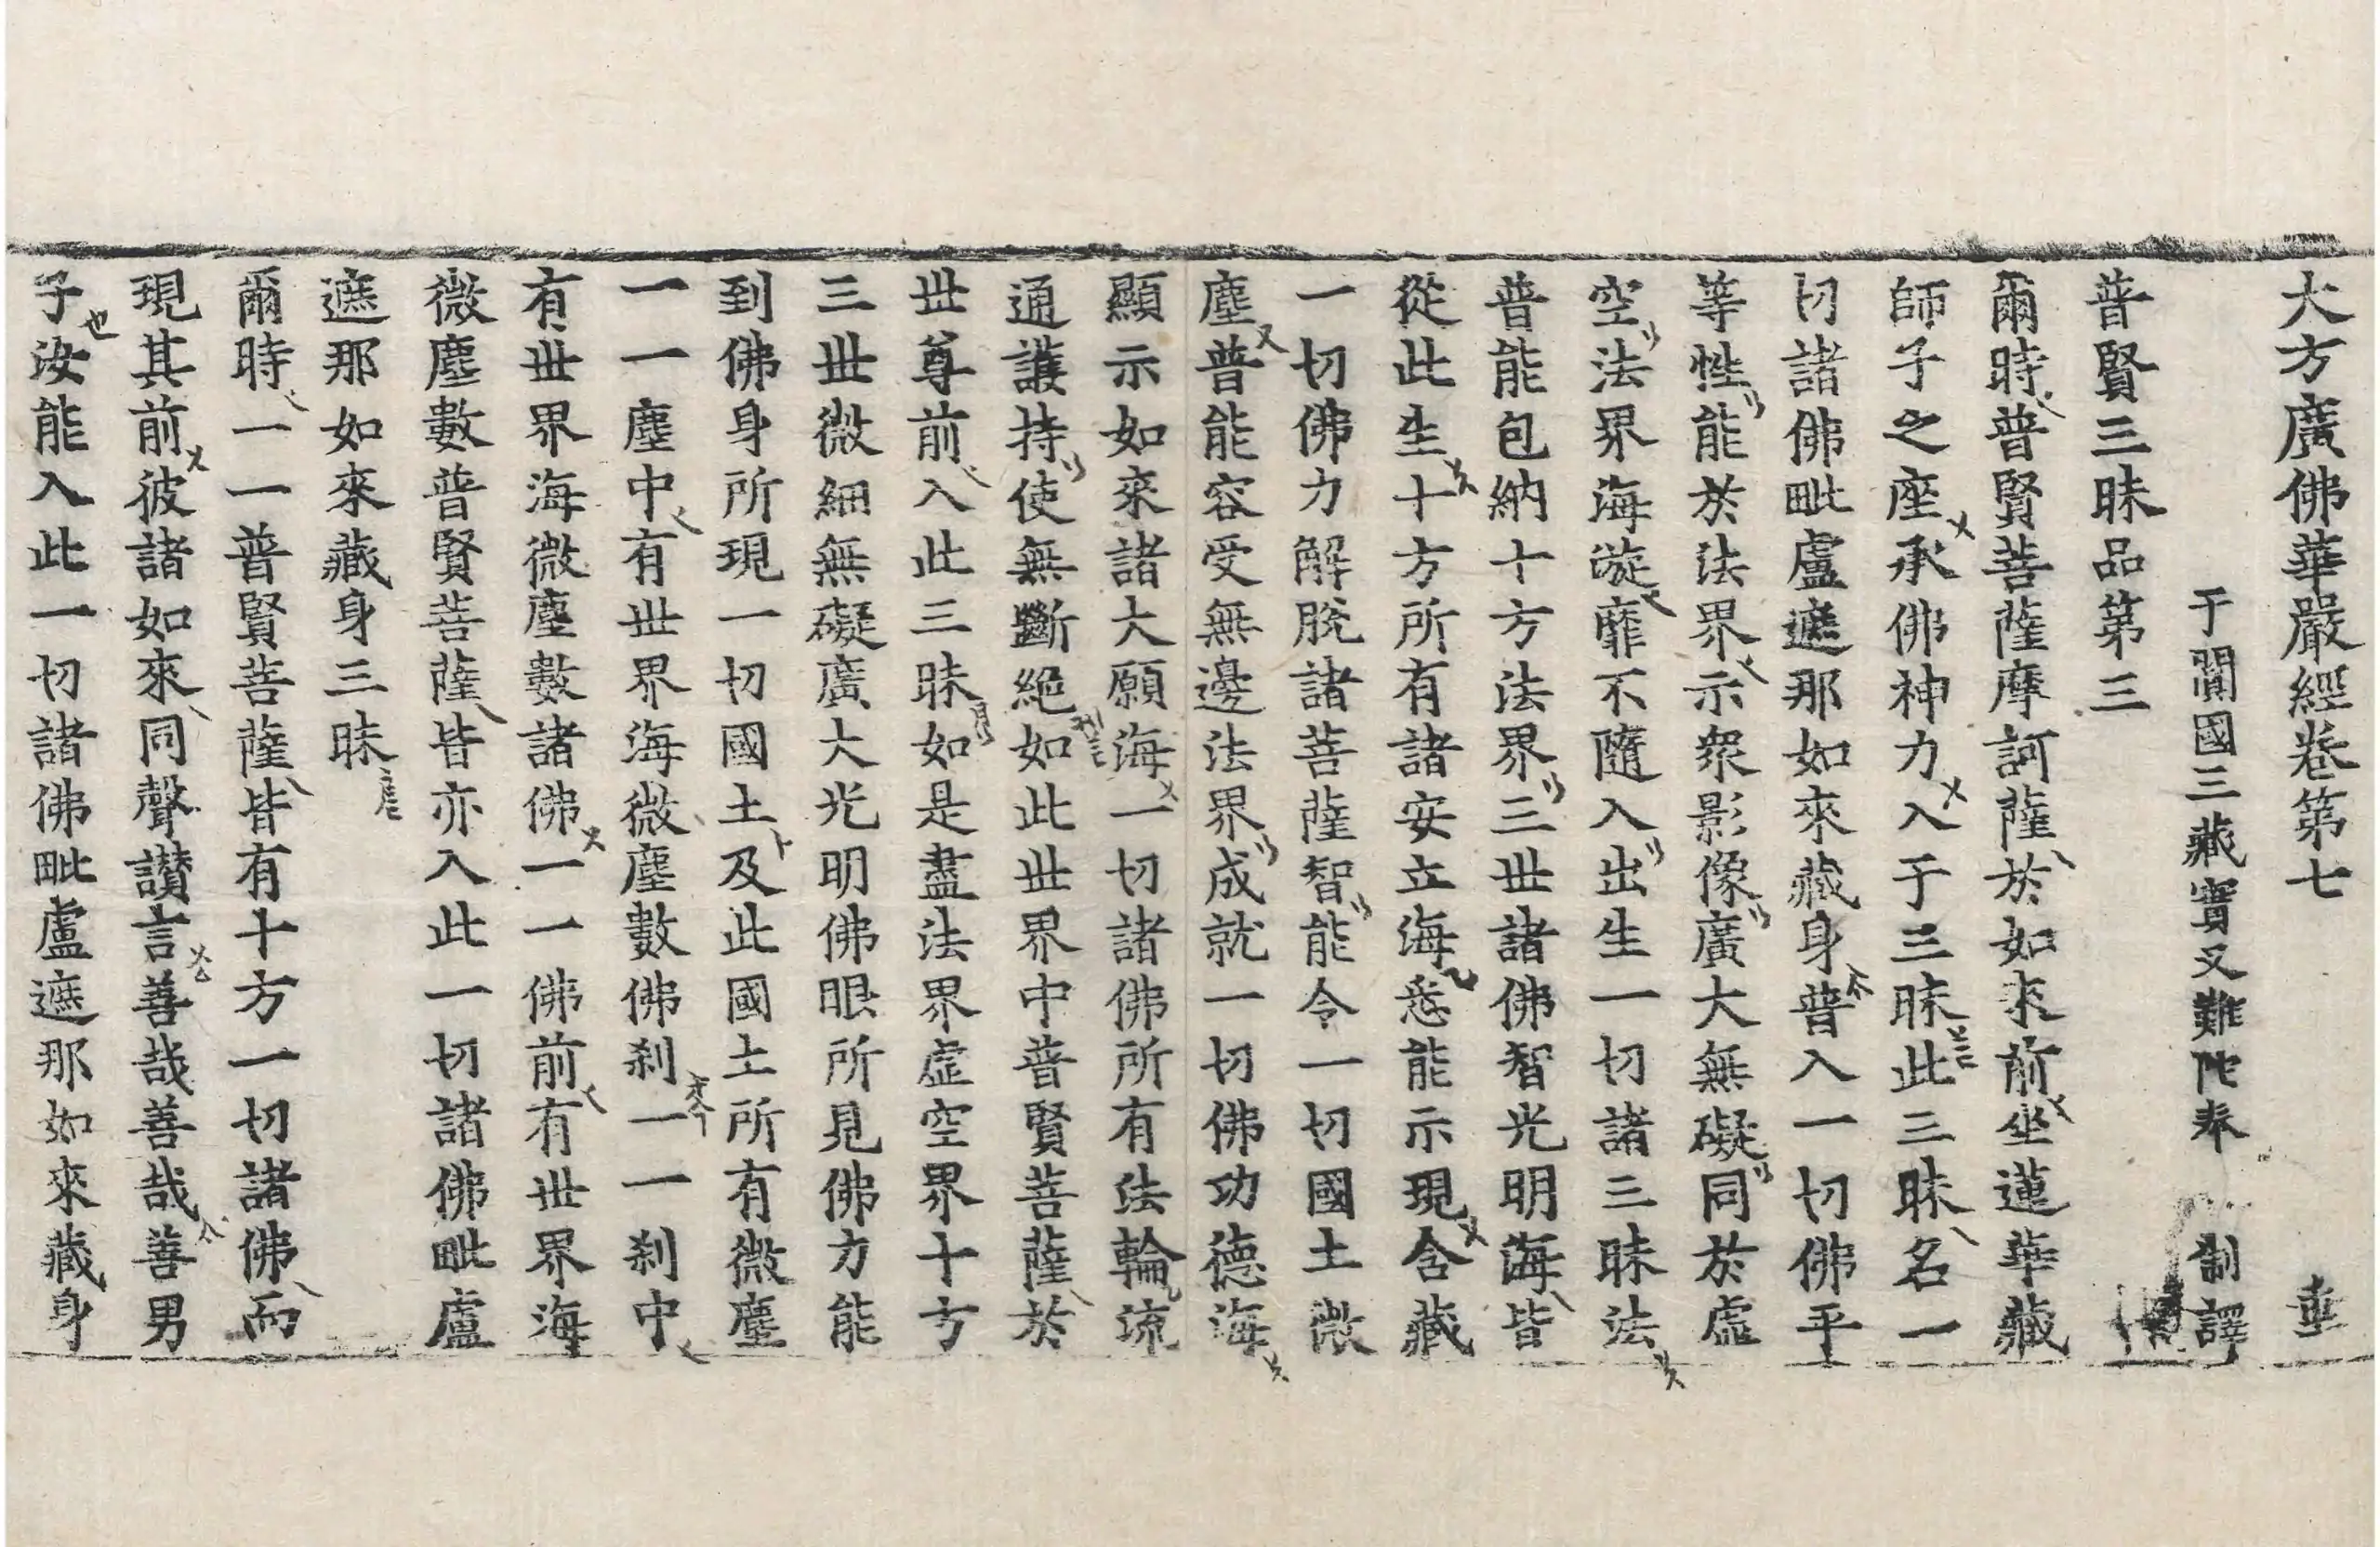 大方廣佛華嚴經卷第七 垂
于闐國三藏實叉難陁奉 制譯
普賢三昧品第三
爾時普賢菩薩摩訶薩於如來前坐蓮華藏
師子之座承佛神力入于三昧此三昧名一
切諸佛毗盧遮那如來藏身普入一切佛平
等性能於法界示衆影像廣大無礙同於虛
空法界海漩靡不隨入出生一切諸三昧法
普能包納十方法界三世諸佛智光明海皆
從此生十方所有諸安立海悉能示現含藏
一切佛力解脫諸菩薩智能令一切國土微
塵普能容受無邊法界成就一切佛功德海
顯示如來諸大願海一切諸佛所有法輪流
通護持使無斷絕如此世界中普賢菩薩於
世尊前入此三昧如是盡法界虛空界十方
三世微細無礙廣大光明佛眼所見佛力能
到佛身所現一切國土及此國土所有微塵
一一塵中有世界海微塵數佛刹一一刹中
有世界海微塵數諸佛一一佛前有世界海
微塵數普賢菩薩皆亦入此一切諸佛毗盧
遮那如來藏身三昧
爾時一一普賢菩薩皆有十方一切諸佛而
現其前彼諸如來同聲讃言善哉善哉善男
子汝能入此一切諸佛毗盧遮那如來藏身